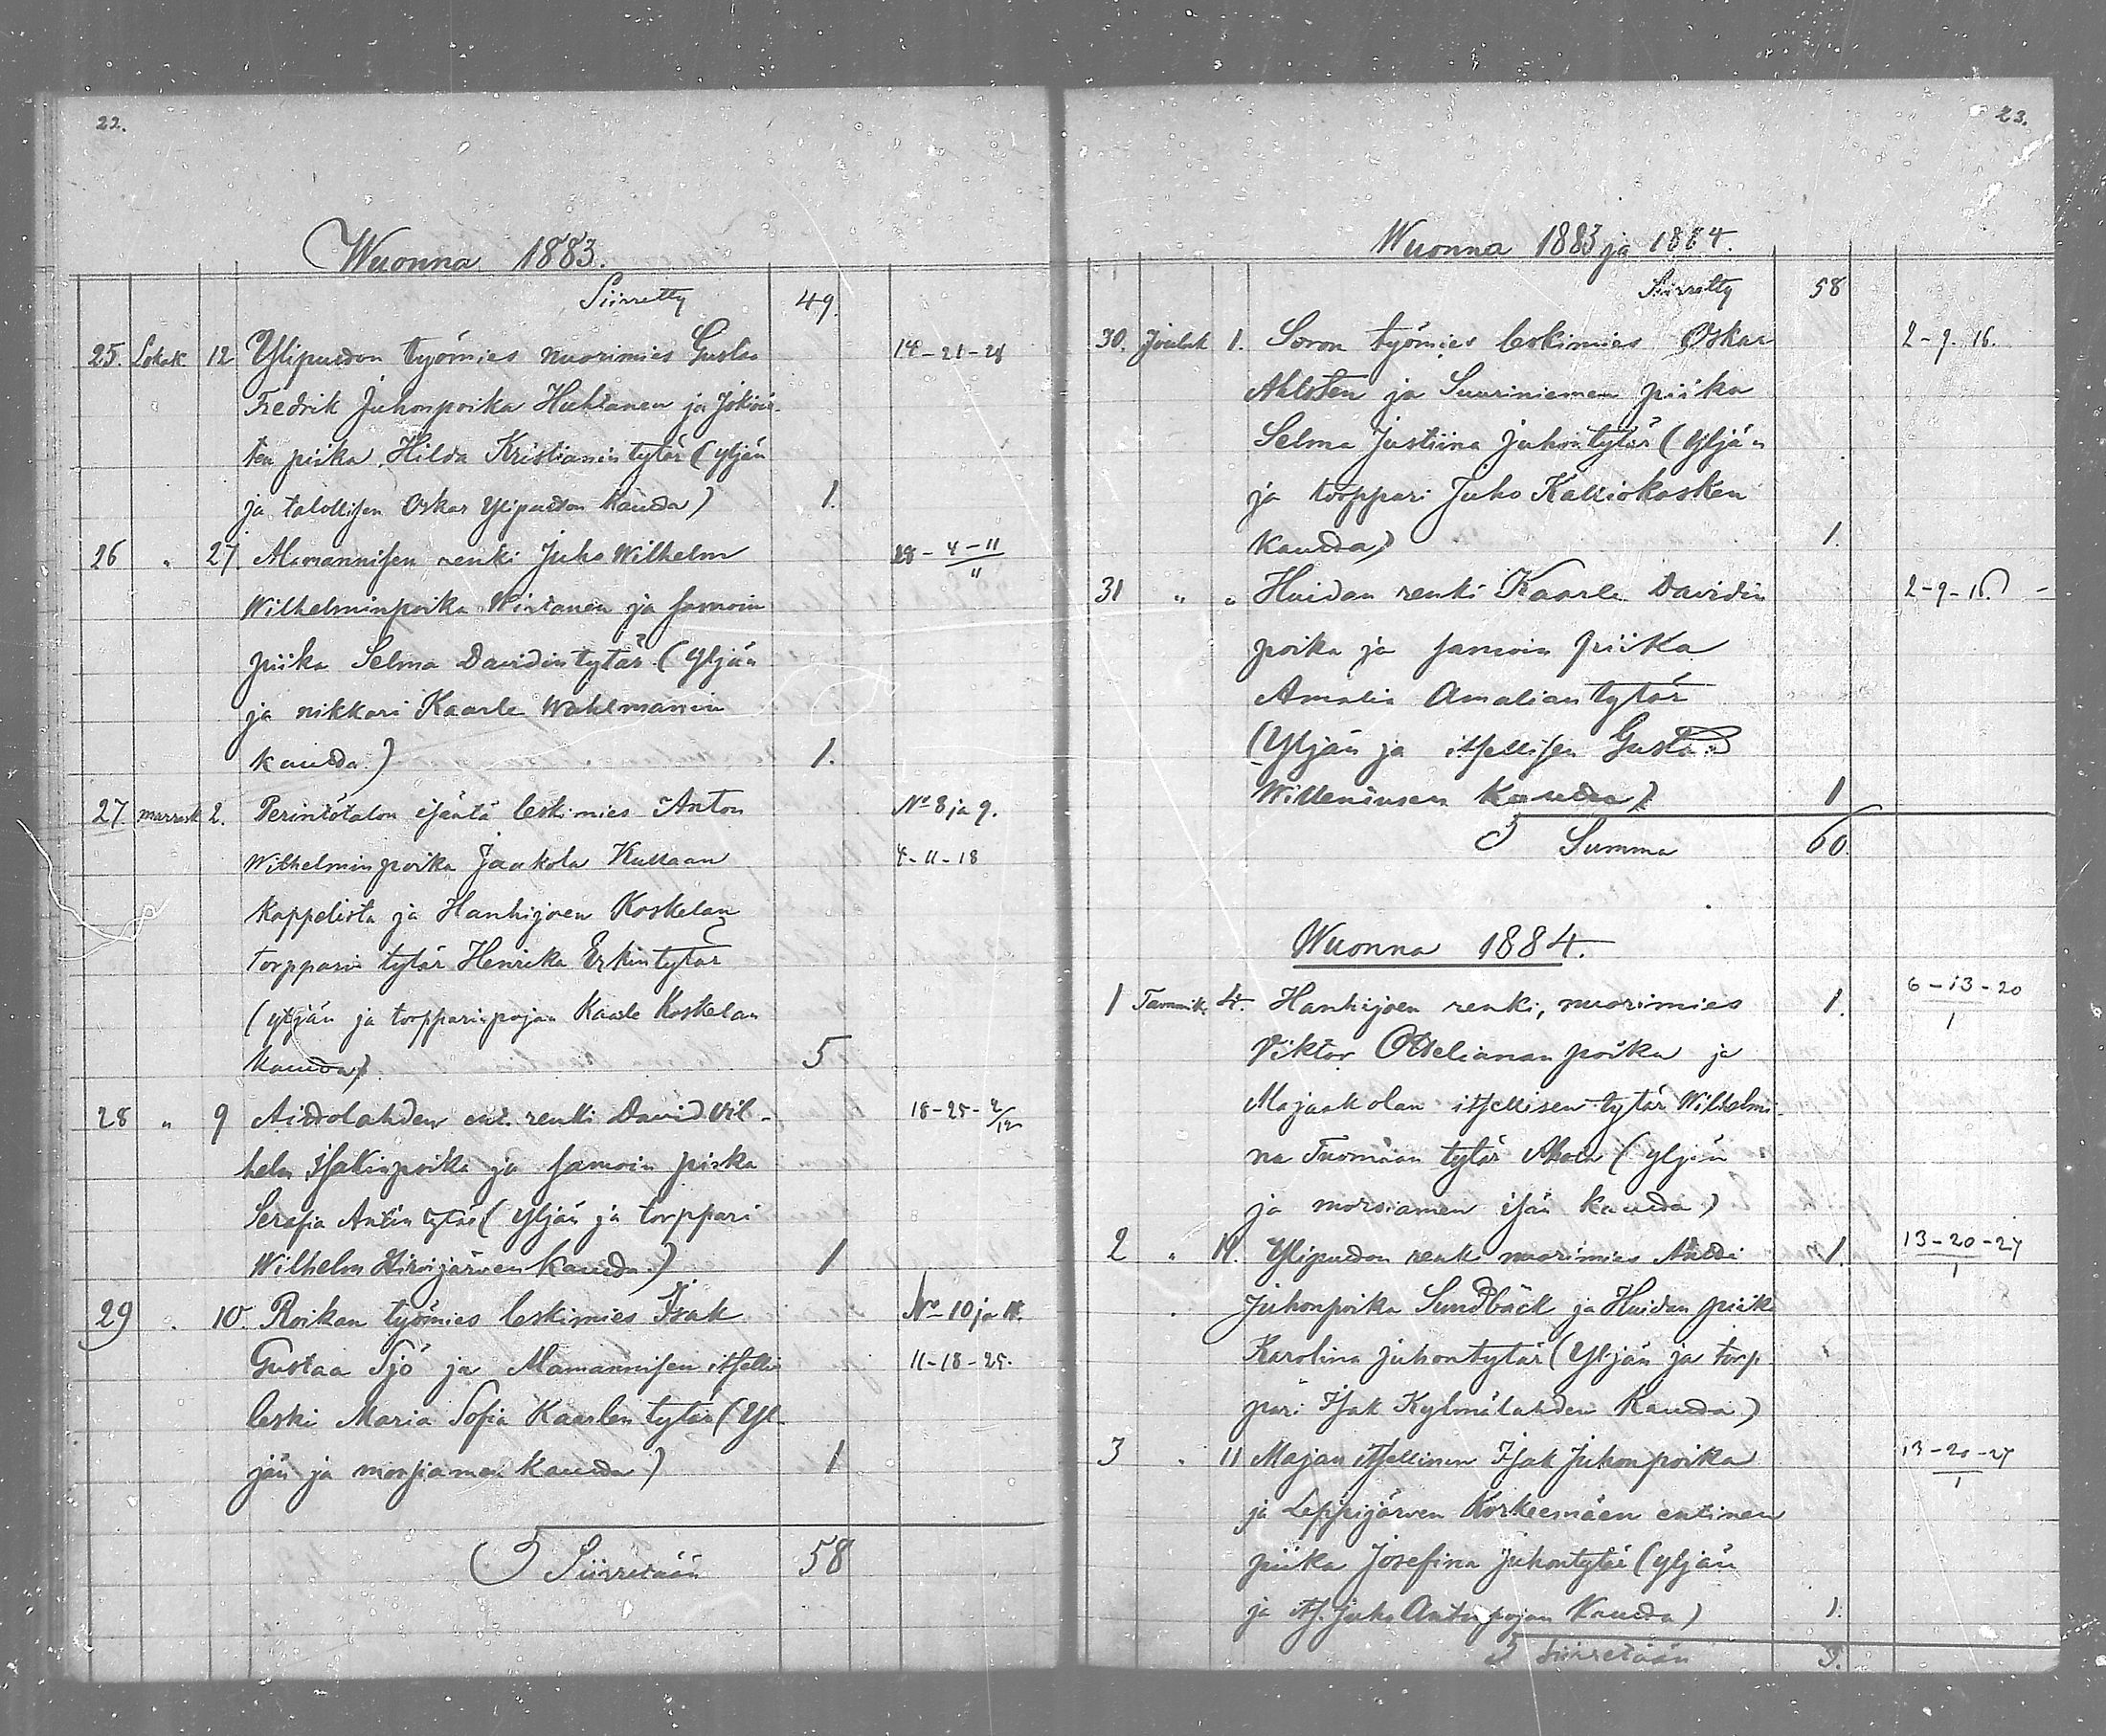 22.
Wuonna 1883.
Siirretty 49.
25. Lokak. 12 Ylipuldon työmies nuorimies Gustaa 14-21-28
Fredrik Juhonpoika Huhtanen ja
ten piika Hilda Kristianintytär (Yljän
ja talollisen Oskar Ylipuldon kautta) 1.
26 " 27 Mamannisen renki Juho Wilhelm 28-4-11/11
Wilhelminpoika Wirtanen ja samoin
piika Selma Davidintytär (Yljän
ja nikkari Kaarle Wahlmanin
kautta) 1.
27. marrask 2. Perintötalon isäntä leskimies Anton No 8 ja 9.
Wilhelminpoika Jaakola Kullaan 4-11-18
kappelista ja Hanhijoen Koskelan
torpparin tytär Henrika Erkintytär
(yljän ja torpparinpojan Kaarle Koskelan
kautta) 5
28 " 9 ent. renki David Vil- 18-25-2/12
helm Isakinpoika ja samoin piika
Serafia Antin tytär (Yljän ja torppari
Wilhelm Hirvijärven kautta) 1
29 . 10. Roikan työmies leskimies Isak No 10 ja 11.
Gustaa Sjö ja Mamannisen itsellis 11-18-25.
leski Maria Sofia Kaarlen tytär (Yl-
jän ja morsiamen kautta) 1
Siirretään 58
23.
Wuonna 1883 ja 1884.
Siirretty 58
30. Jouluk 1. Soron työmies leskimies Oskar 2-9-16.
Ahlsten ja Suuriniemen piika
Selma Justiina Juhontytär (Yljän
ja torppari Juho Kalliokosken
kautta) 1.
31 " " Huidan renki Kaarle Davidin 2-9-16.
poika ja samoin piika
Amalia Amaliantytär
(Yljän ja itsellisen Gustaa
Willeniusen kautta) 1
Summa 60.
Wuonna 1884.
1 Tammik. 4. Hanhijoen renki, nuorimies 1. 6-13-20/1
Viktor Ottelianan poika ja
Majaakolan itsellisen tytär Wilhelmi-
na Tuomaan tytär (yljän
ja morsiamen isän kautta)
2 " 11. Ylipuldon renki nuorimies Antti 1. 13-20-27/1
Juhonpoika Sundbäck ja Huidan piik
Karolina Juhontytär (Yljän ja torp
pari Isak Kylmälahden kautta)
3 . 11 Majan itsellinen Isak Juhonpoika 13-20-27/1
ja Leppijärven Korkeemäen entinen
piika Josefina Juhontytär (yljän
ja its. Juho Antinpojan kautta) 1.
Siirretään 3.